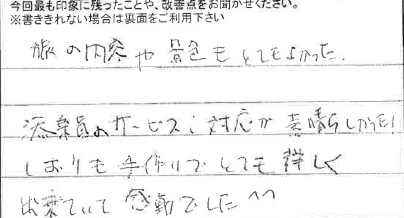 今回最も印象に残ったことや、改善点をお聞かせください。
※書ききれない場合は裏面をご利用下さい
旅の内容や景色もとてもよかった。
添乗員のサービス、対応が素晴らしかった!
しおりも手作りでとても詳しく
出来ていて感動でした^^